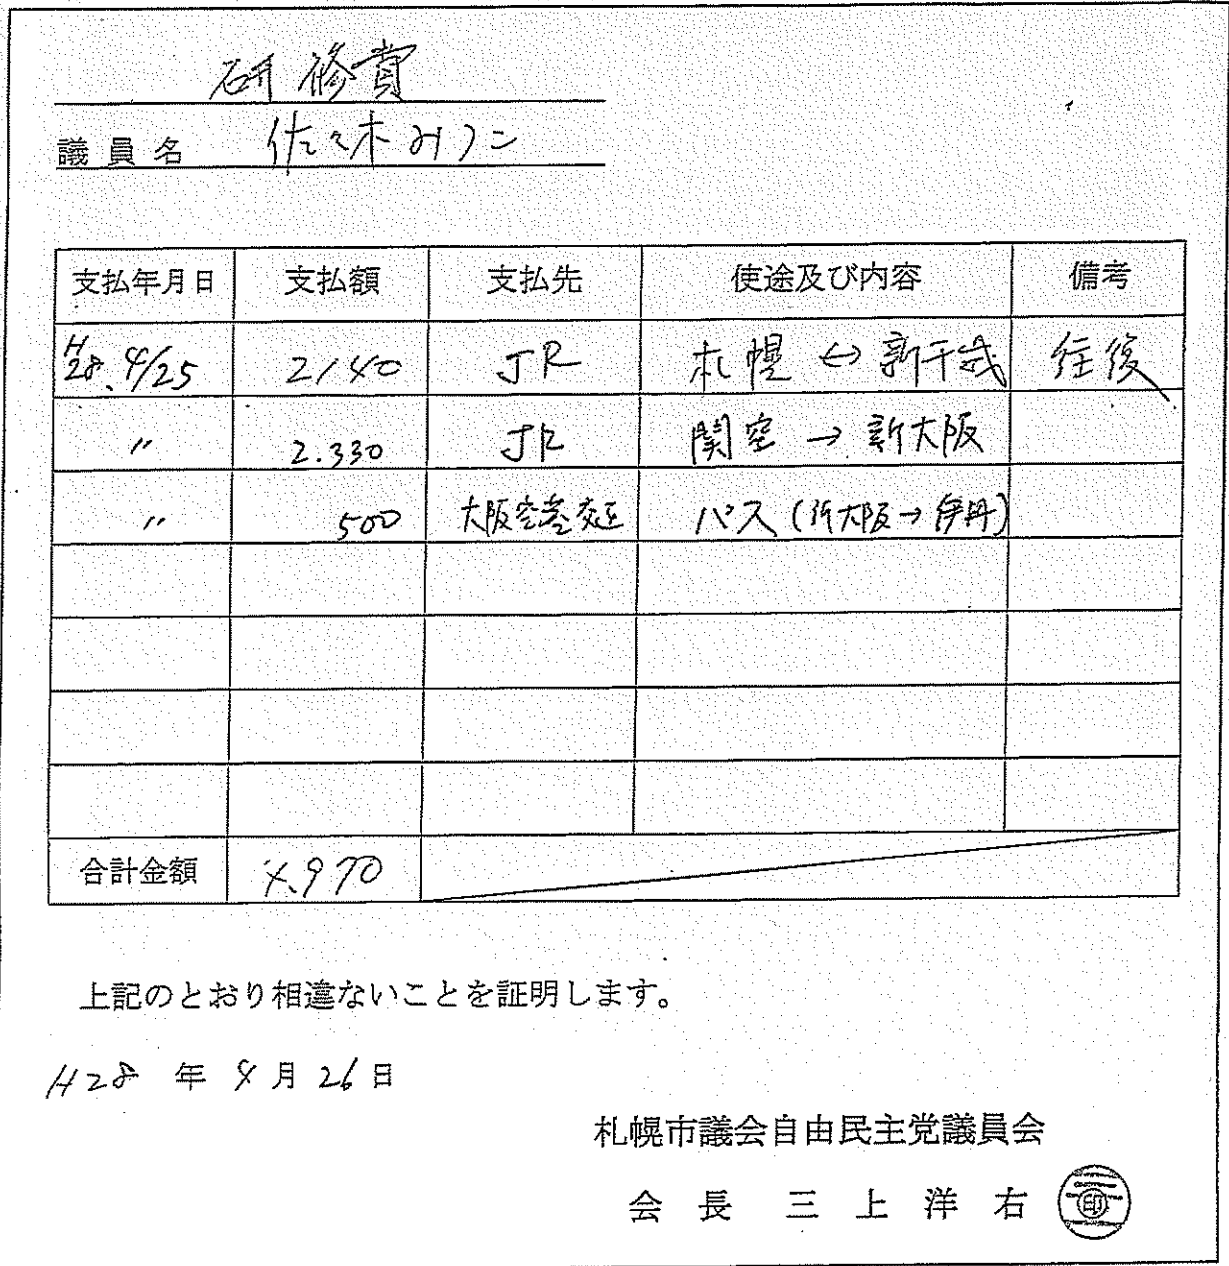 研修費
議員名 佐々木みつこ
支払年月日 支払額 支払先 使途及び内容 備考
H28.4/25 2140 JR 札幌 ↔ 新千歳 往復
〃 2.330 JR 関空 → 新大阪
〃 500 大阪空港交通 バス (新大阪→伊丹)
合計金額 4.970
上記のとおり相違ないことを証明します。
H28 年 4 月 26 日
札幌市議会自由民主党議員会
会長 三上洋右 印